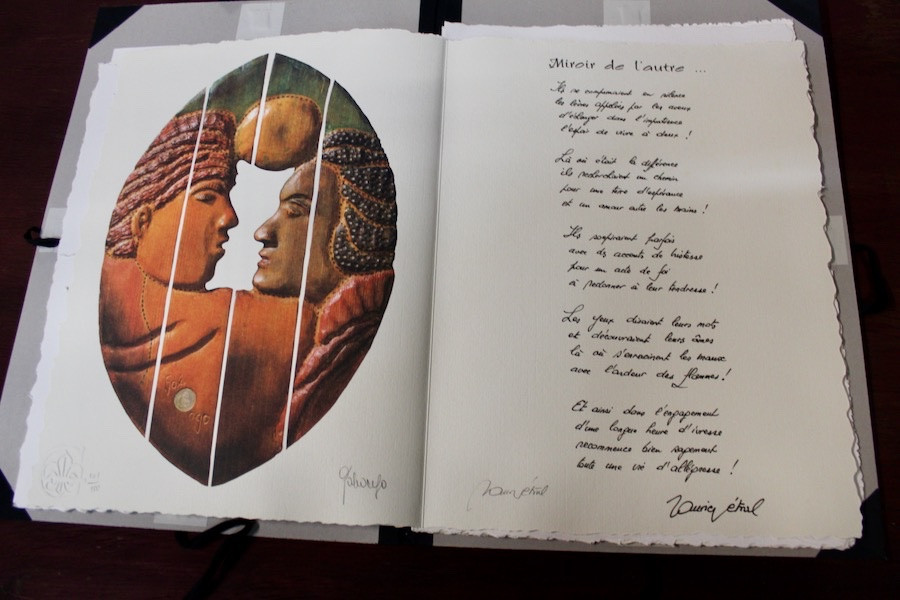 Miroir de l'autre ...
Ils se comprimaient en silence
les lèvres appelées par les aveux
d'échanger dans l'impatience
l'espoir de vivre à deux !
Là où s'était la différence
ils recherchaient un chemin
pour une terre d'espérance
et un amour entre les mains !
Ils soupiraient parfois
avec des accents de tristesse
pour un acte de foi
à redonner à leur tendresse !
Les yeux disaient leurs mots
et découvraient leurs âmes
là où s'enracinent les maux
avec l'ardeur des flammes !
Et ainsi dans l'engagement
d'une longue heure d'ivresse
recommence bien sagement
toute une vie d'allégresse !